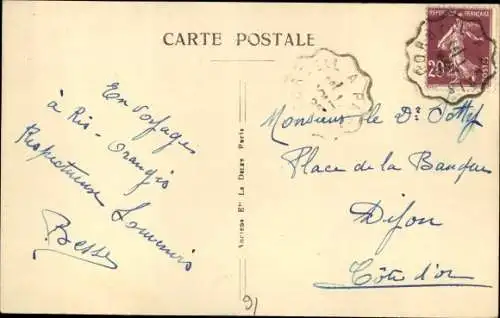 CARTE POSTALE
En voyage
à Ris-Orangis
Respectueux Souvenirs
Besse
Anciens Etts La Deley Paris
REPUBLIQUE FRANÇAISE
20
Monsieur le Dr
Place de la Banque
Dijon
Côte d'or
91